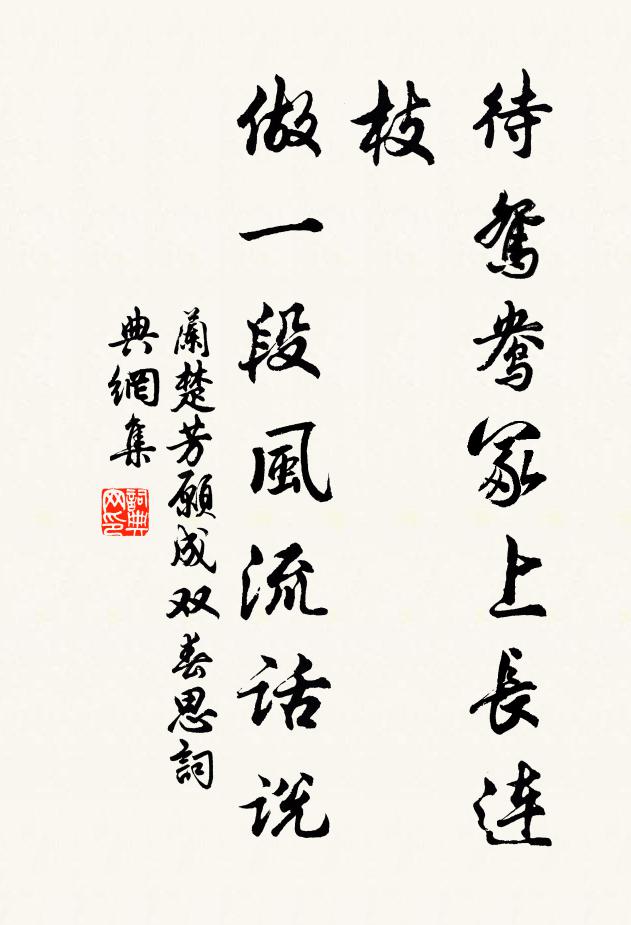 待鴛鴦冢上長連
枝
做一段風流話說
蘭楚芳願成双春思詞
典網集
詞典
网印